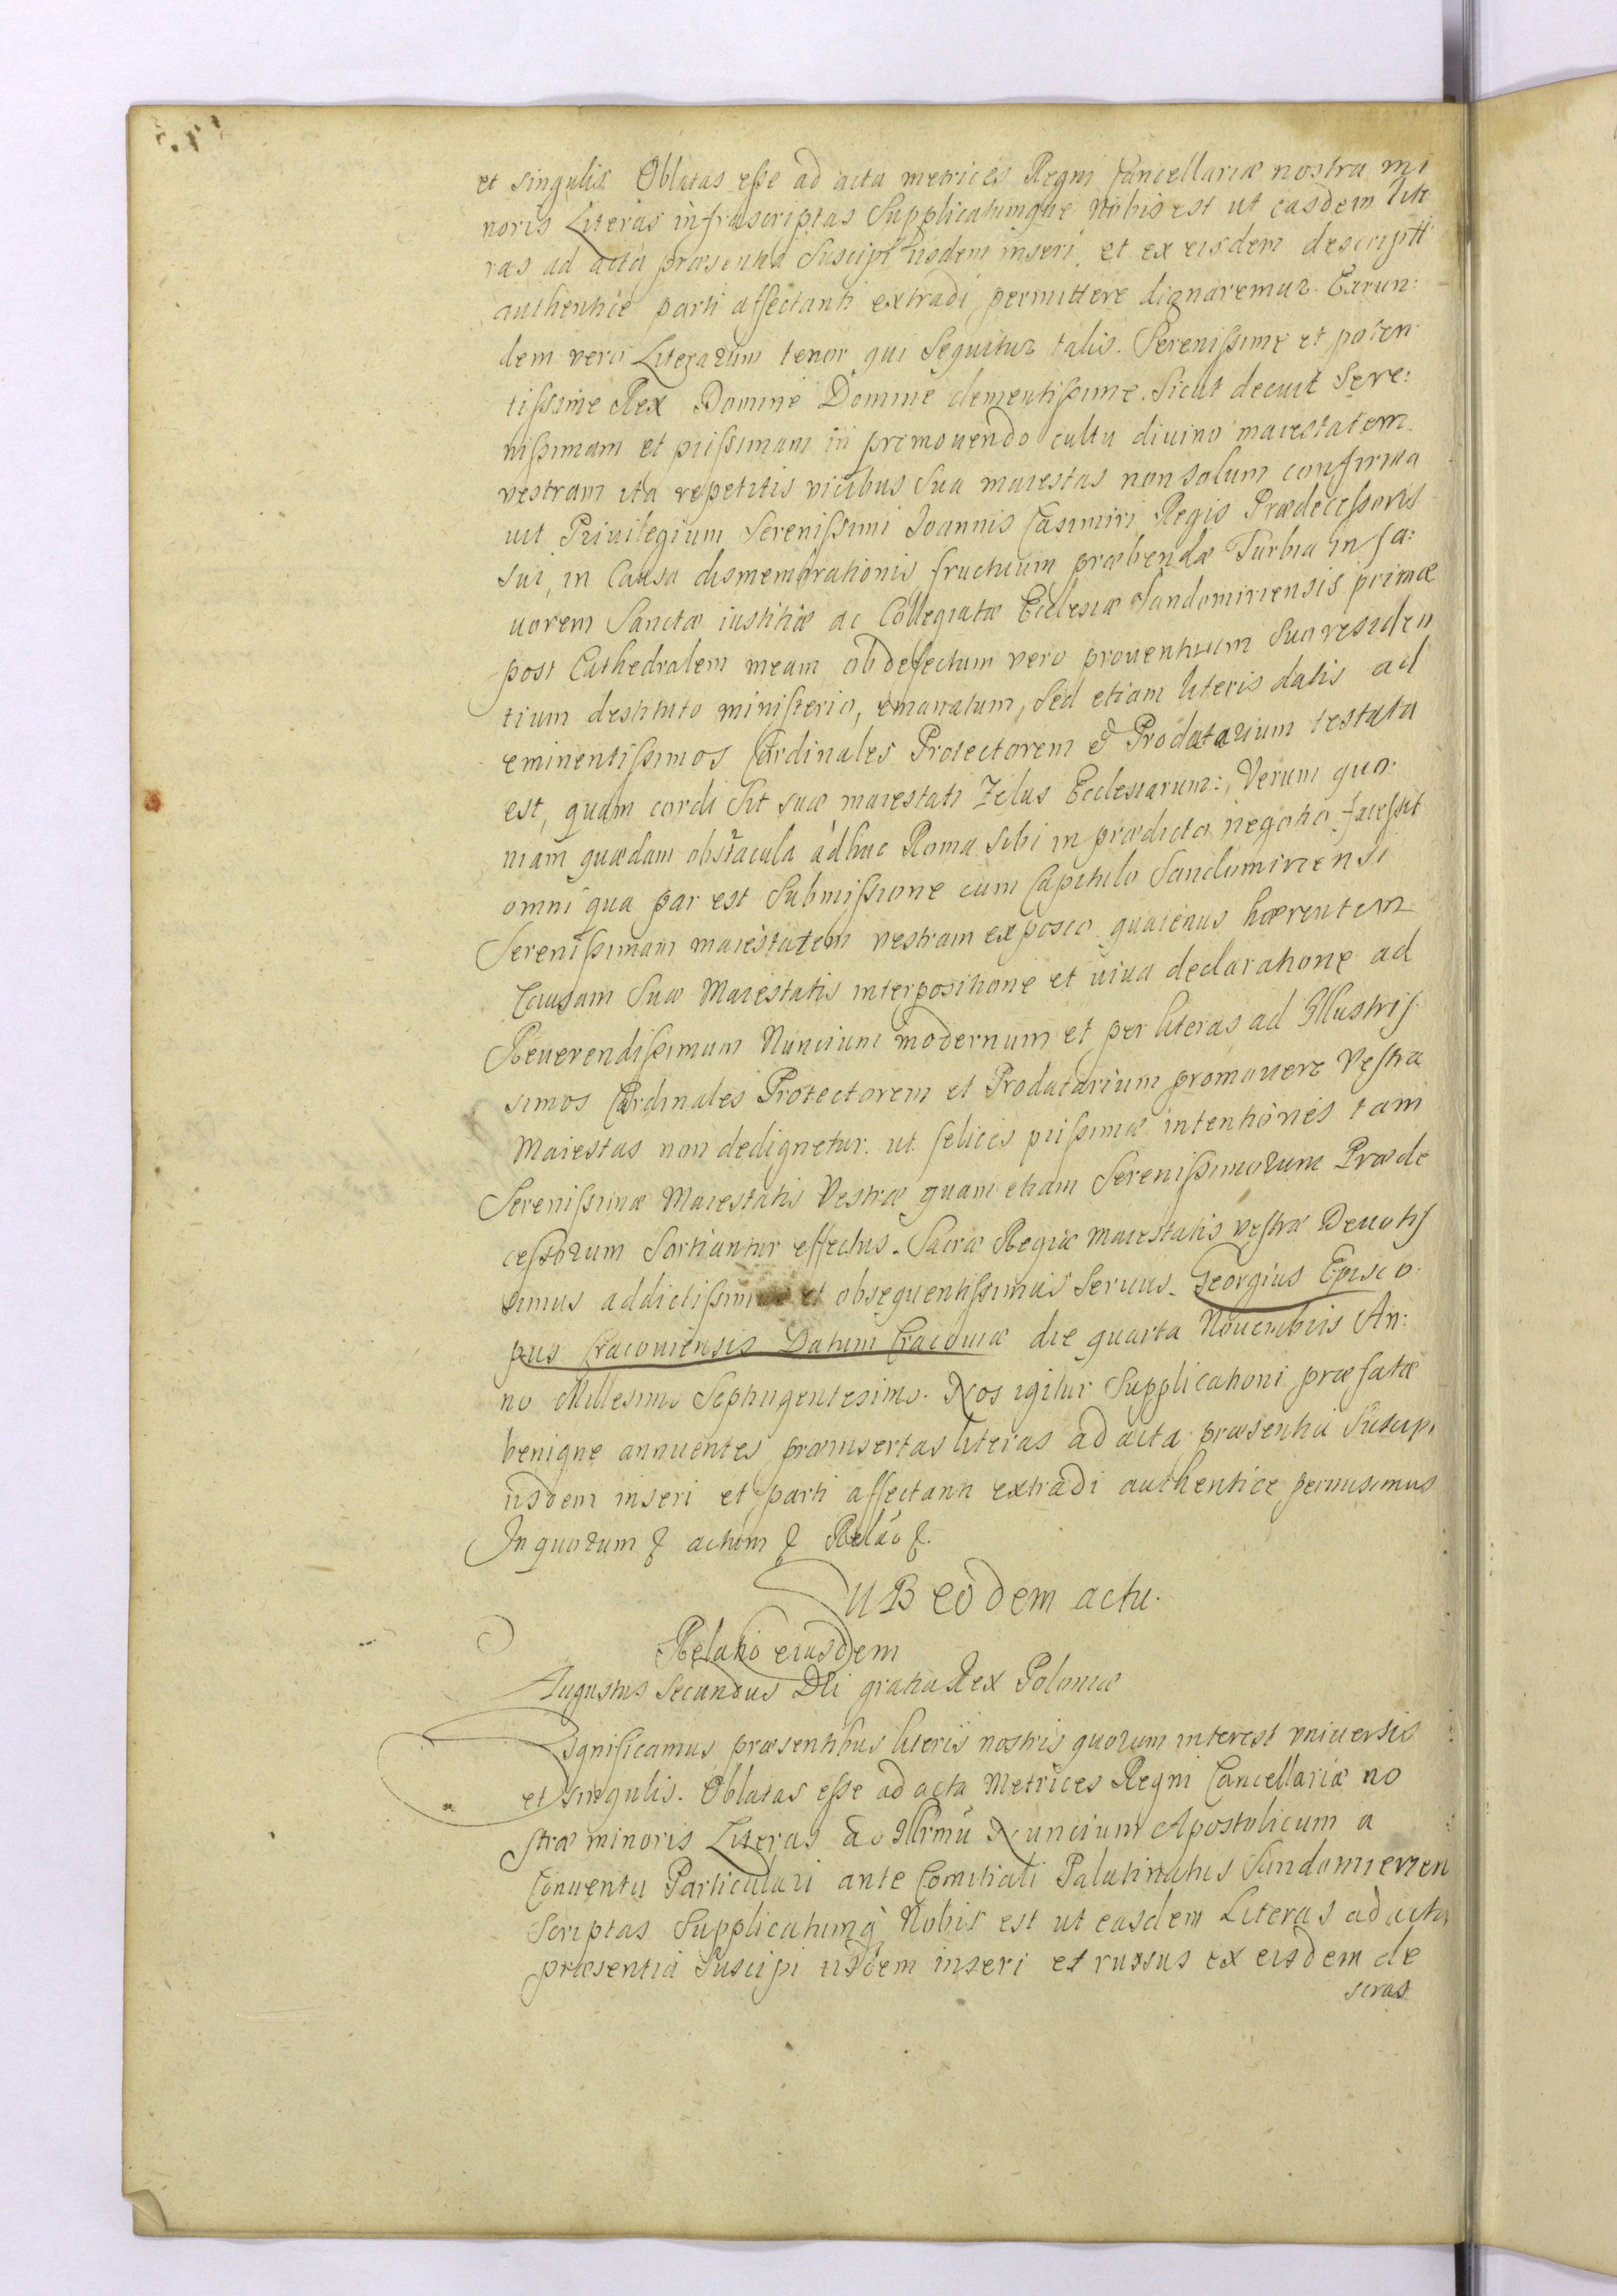 et singulis Oblatas esse ad acta metrices Regni Cancellariæ nostræ mi
noris Literas infrascriptas Supplicatumque Nobis est ut easdem lite
ras ad acta præsentia Suscipi iisdem inseri et ex eisdem descriptt
authentice parti affectanti extradi permittere dignaremur. Earun:
dem vero Literarum tenor qui Sequitur talis. Serenissime et poten
tissime Rex Domine Domine clementissime. Sicut decuit Sere:
nissimam et piissimam in promouendo cultu diuino maiestatem
vestram ita repetitis vicibus Sua maiestas non solum confirma
uit Priuilegium Serenissimi Joannis Casimiri Regis Prædecessoris
sui, in Causa dismembrationis fructuum præbendæ Turbia in fa:
uorem Sanctæ iustitiæ ac Collegiatæ Ecclesiæ Sandomiriensis primæ
post Cathedralem meam ob defectum vero prouentuum Suo residen
tium destituto ministerio, emanatum, Sed etiam literis datis ad
eminentissimos Cardinales Protectorem & Prodatarium testata
est, quam cordi sit suæ maiestati Zelus Ecclesiarum: Verum quo:
niam quædam obstacula adhuc Roma Sibi in prædicto negotio facessit
omni qua par est Submissione cum Capitulo Sandomiriensi
Serenissimam maiestatem vestram exposco quatenus hærentem
Causam Suæ Maiestatis interpositione et viua declaratione ad
Reuerendissimum Nuncium modernum et per literas ad Illustris
simos Cardinales Protectorem et Prodatarium promouere Vestra
Maiestas non dedignetur. ut felices piissimæ intentiones tam
Serenissimæ Maiestatis Vestræ quam etiam Serenissimorum Præde
cessorum Sortiantur effectus. Sacræ Regiæ Maiestatis vestræ Deuotis
simus addictissimus et obsequentissimus Seruus. Georgius Episco
pus Cracouiensis Datum Cracouiæ die quarta Nouembris An:
no Millesimo Septingentesimo. Nos igitur Supplicationi præfatæ
benigne annuentes præinsertas literas ad acta præsentia Suscipi
iisdem inseri et parti affectanti extradi authentice permisimus
In quorum & actum & Relão &.
SUB eodem actu.
Relatio eiusdem
Augustus Secundus Dei gratia Rex Poloniæ
Significamus præsentibus literis nostris quorum interest vniuersis
et singulis. Oblatas esse ad acta Metrices Regni Cancellariæ no
stræ minoris Literas ad Illrmũ Nuncium Apostolicum a
Conuentu Particulari ante Comitiali Palatinatus Sandomirien
Scriptas Supplicatumq̀ Nobis est ut easdem Literas ad acta
præsentia Suscipi iisdem inseri et rursus ex eisdem de
scras